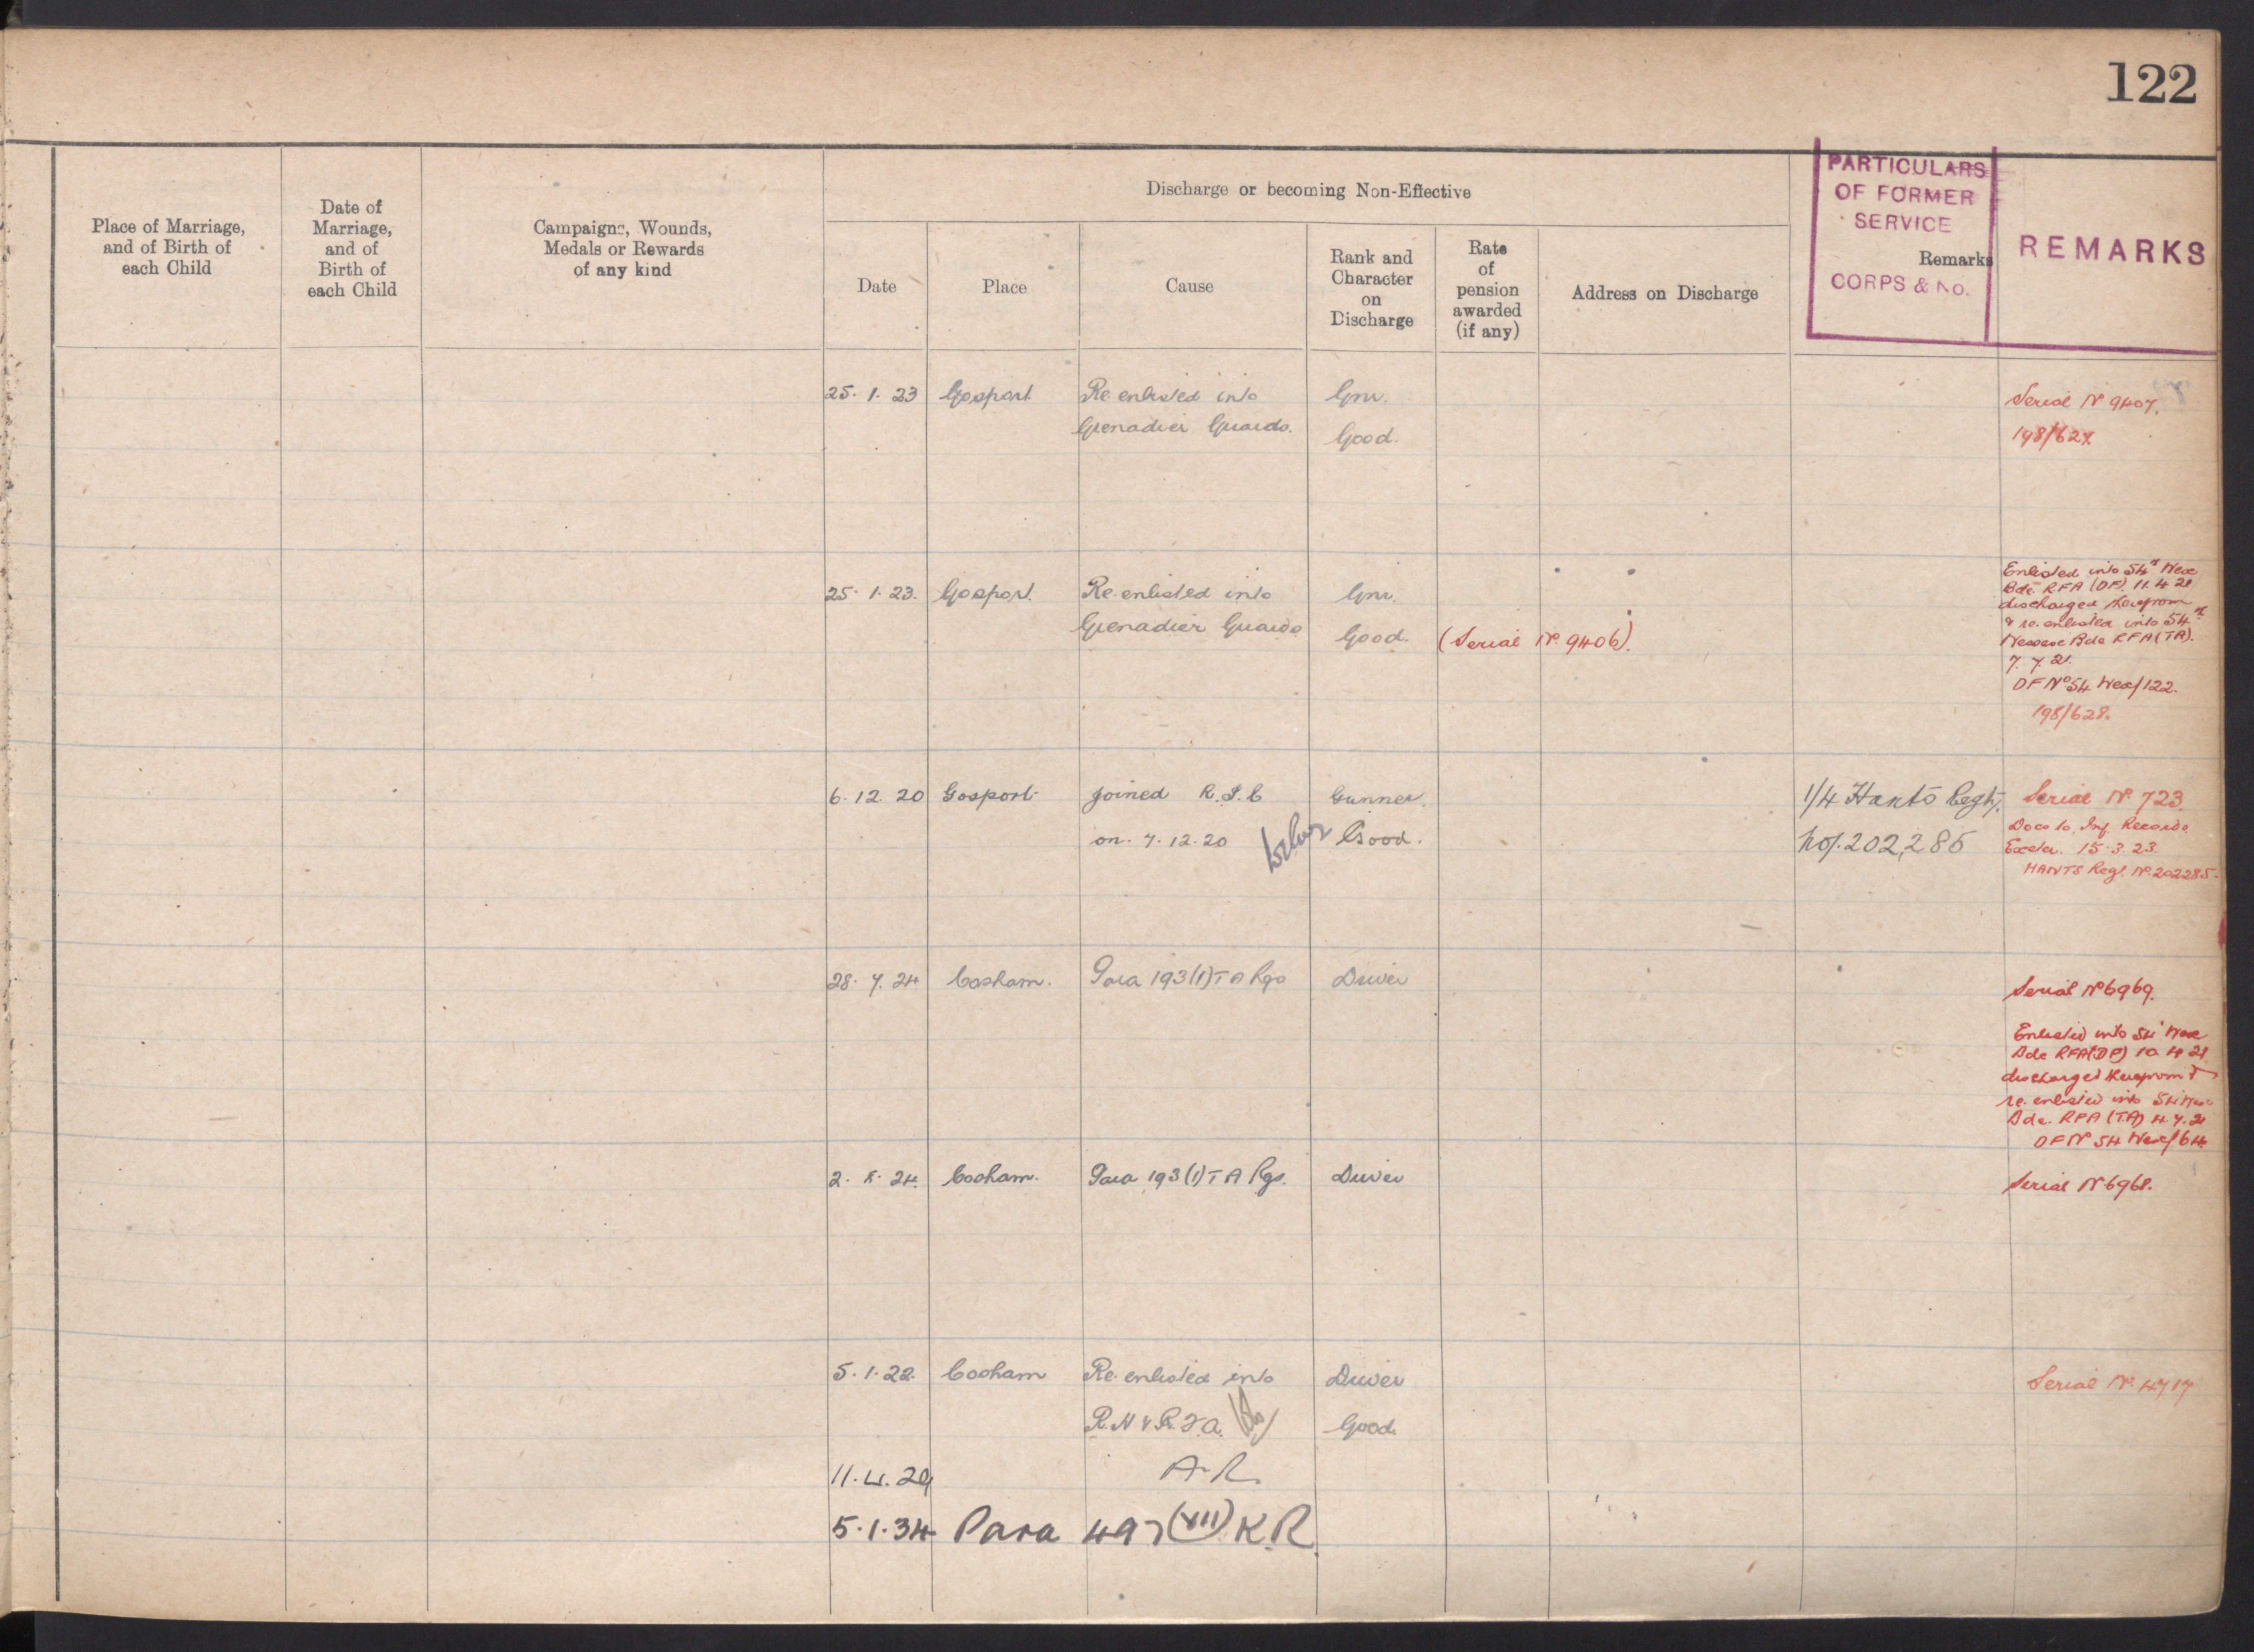 122
Place of Marriage,
and of Birth of
each Child
Date of
Marriage,
and of
Birth of
each Child
Campaigns, Wounds,
Medals or Rewards
of any kind
Discharge or becoming Non-Effective
Date
Place
Cause
Rank and
Character
on
Discharge
Rate
of
pension
awarded
(if any)
Address on Discharge
PARTICULARS
OF FORMER
SERVICE
Remarks
CORPS & No.
REMARKS
25. 1. 23 Gosport. Re enlisted into Gnr. Serial No 9407.
Grenadier Guards. Good. 198/627.
25. 1. 23. Gosport. Re-enlisted into Gnr.
Grenadier Guards Good. (Serial No. 9406).
Enlisted into 54th Wex
Bde RFA (DF) 11.4.21
discharged therefrom
& re-enlisted into 54th
Wessex Bde RFA (TA).
7. 7. 21.
DF No 54 Wex/122.
198/628.
6. 12. 20 Gosport Joined R.G.C Gunner. 1/4 Hants Regt. Serial No. 723
on. 7. 12. 20 Good. No. 202,285
Docs to Inf. Records
Exeter. 15. 3. 23.
HANTS Regt. No. 202285.
28. 7. 24 Cosham. Para 193(1) TA Rgs Driver Serial No 6969.
Enlisted into 54 Wex
Bde RFA (DF) 10 4 21
discharged therefrom &
re-enlisted into 54 Wex
Bde. RFA (TA) 4. 7. 21
DF No 54 Wex/64
2. 8. 24. Cosham. Para 193(1) TA Rgs. Driver Serial No. 6968.
5. 1. 22. Cosham Re enlisted into Driver Serial No. 4717
R.H & R.F.A. Good.
11. 4. 29 A.R.
5. 1. 34 Para 497 (VII) K.R.